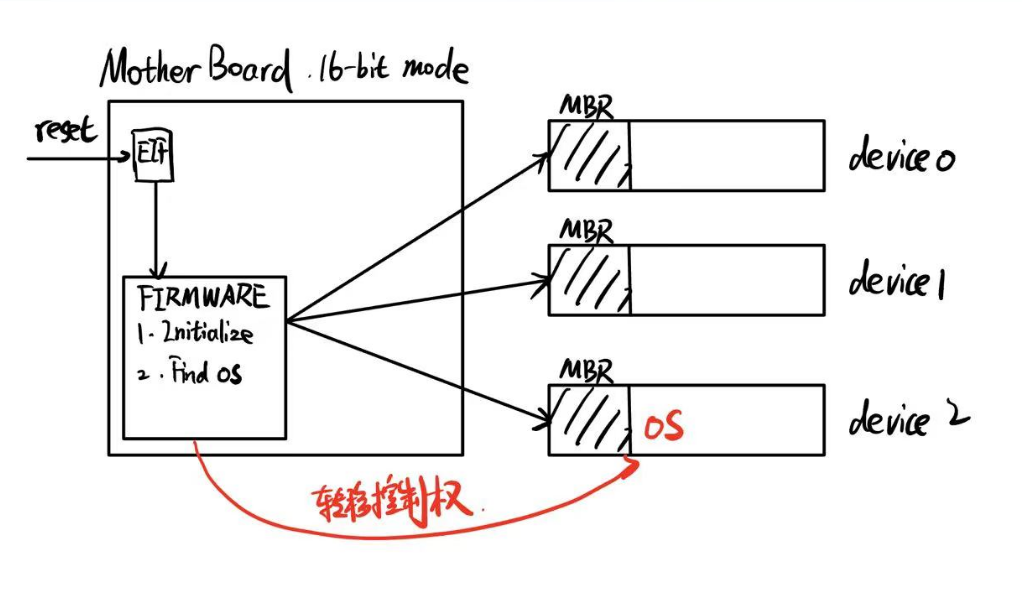 MotherBoard . 16-bit mode
reset
EIP
FIRMWARE
1. Initialize
2. Find OS
MBR
device 0
MBR
device 1
MBR
OS
device 2
转移控制权.